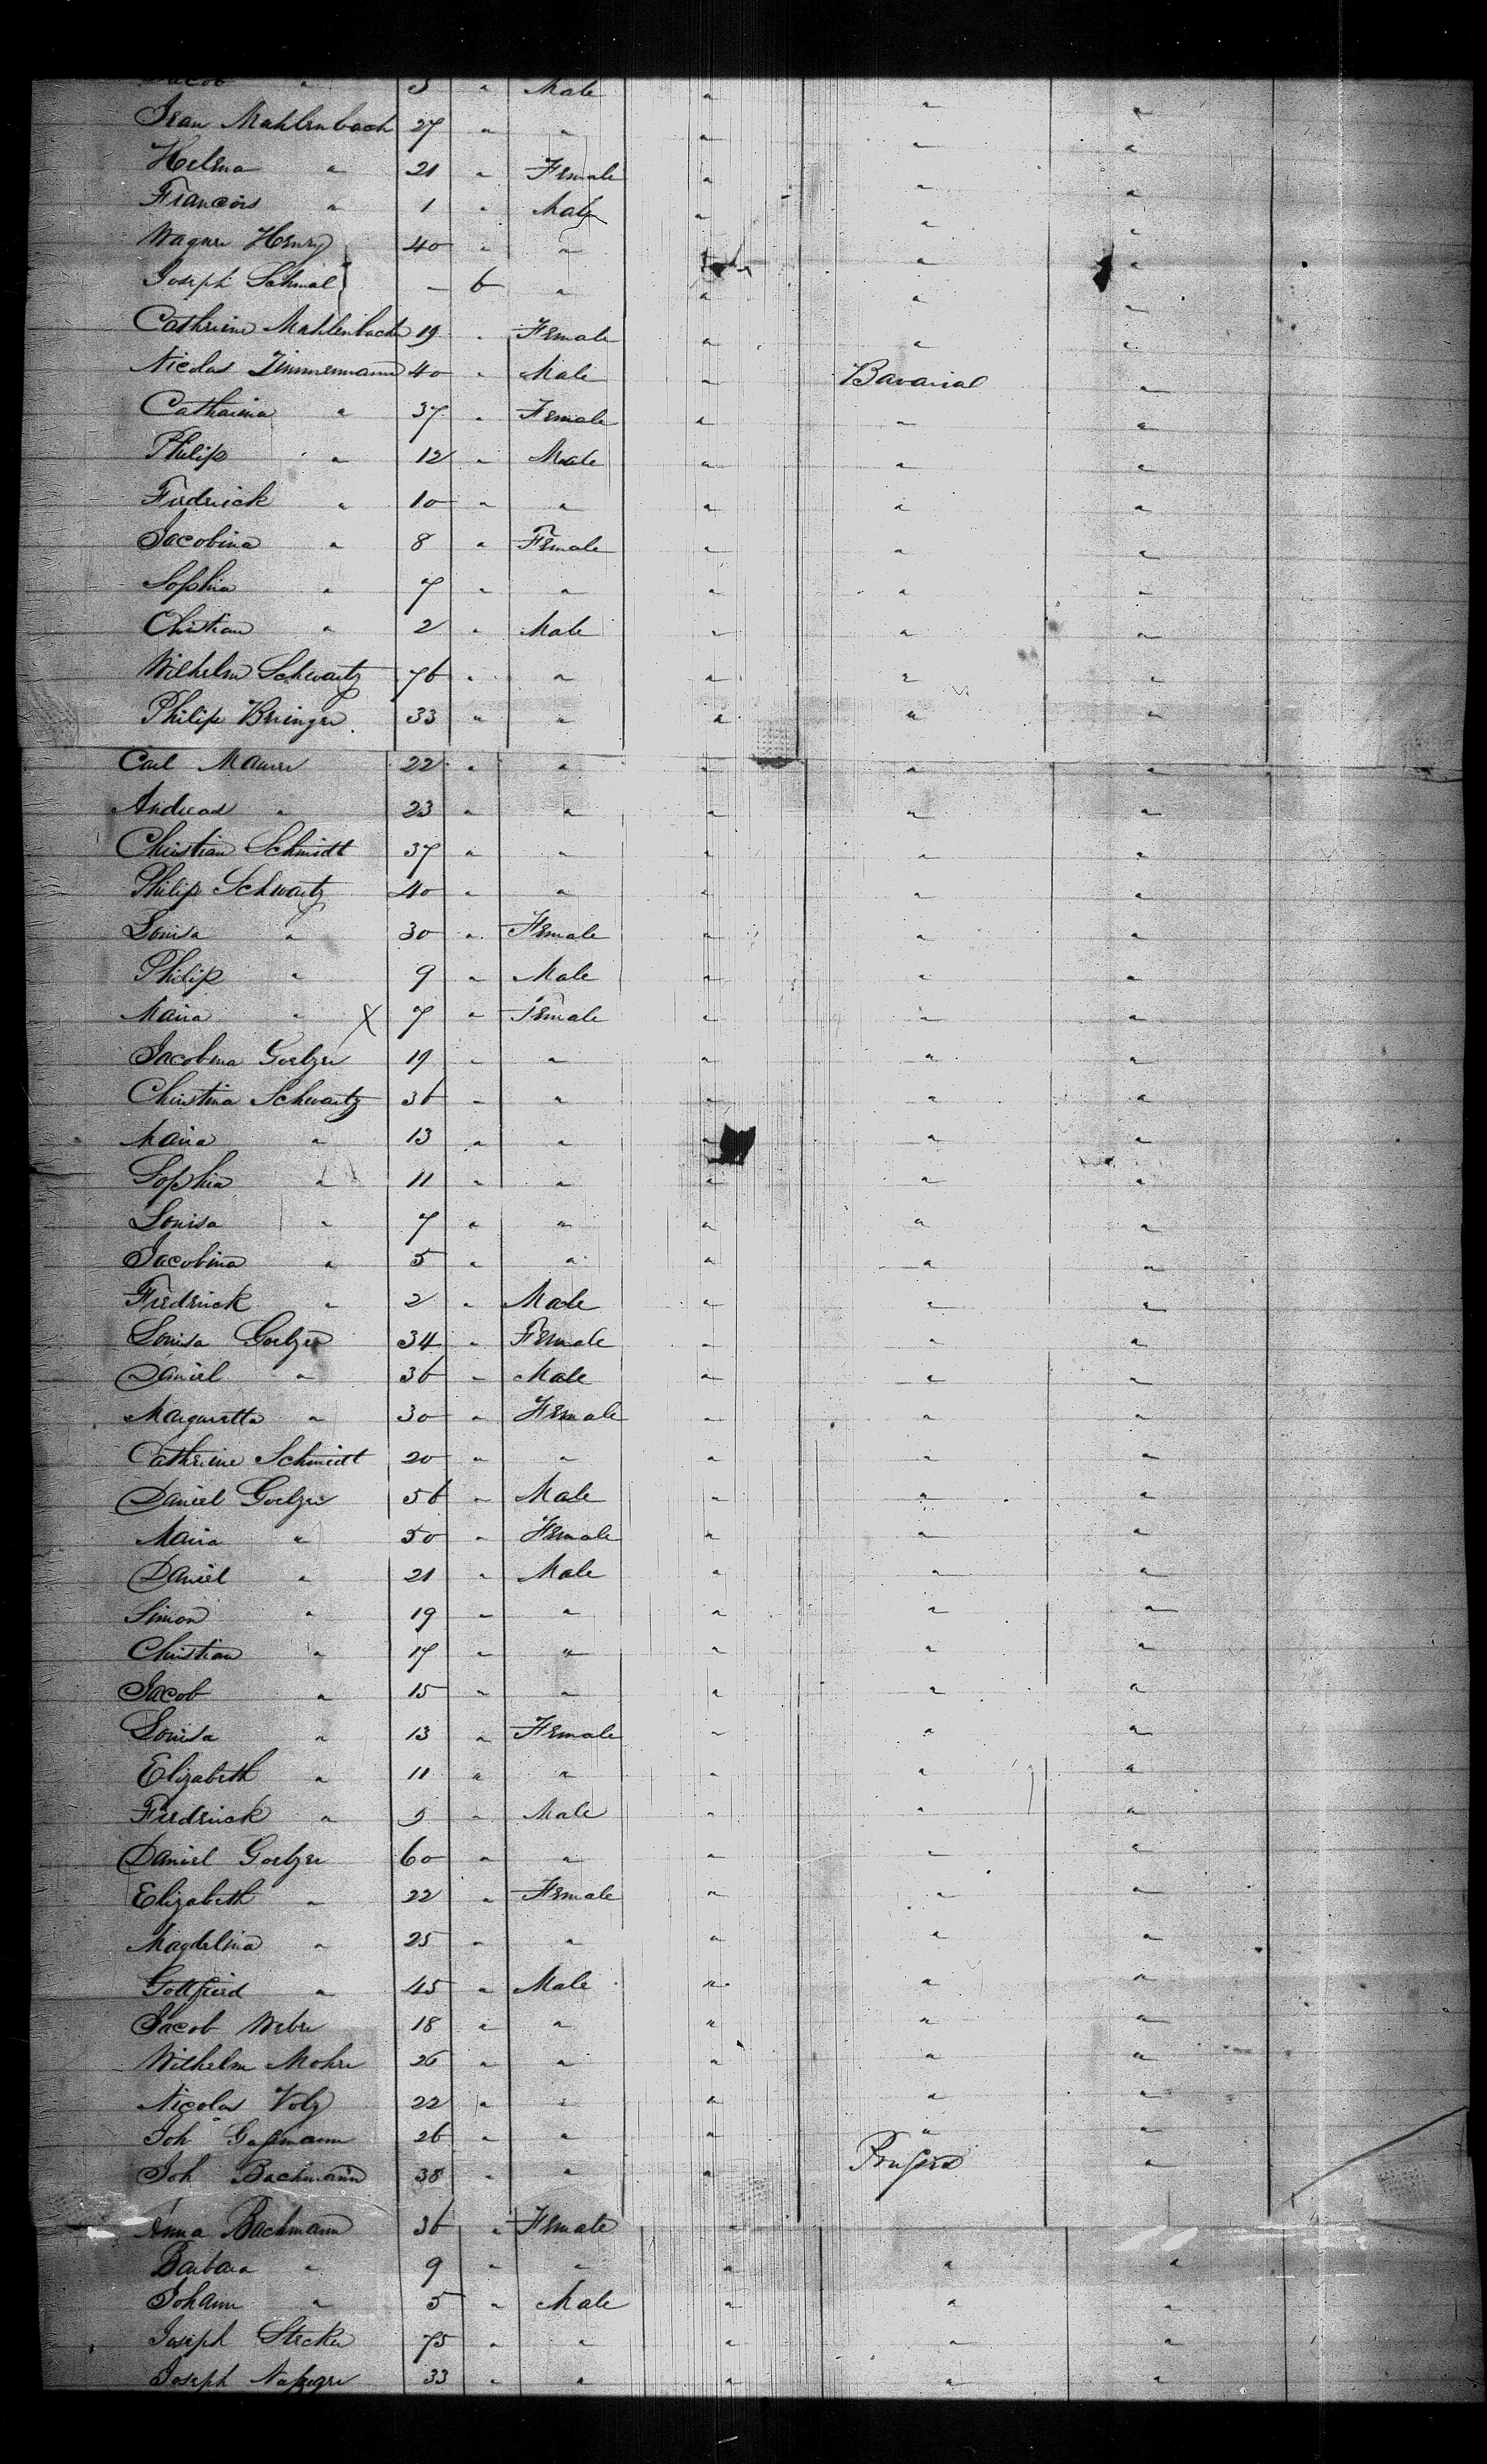 Jacob " 3 " Male " " "
Jean Mahlenbach 27 " " " " "
Helena " 21 " Female " " "
Francois " 1 " Male " " "
Wagner Henry 40 " " " "
Joseph Schmal — 6 " " " "
Cathrine Mahlenbach 19 " Female " " "
Nicolas Zimmermann 40 " Male " Bavaria "
Catharina " 37 " Female " " "
Philip " 12 " Male " " "
Fredrick " 10 " " " " "
Jacobina " 8 " Female " " "
Sophia " 7 " " " " "
Christian " 2 " Male " " "
Wilhelm Schwartz 76 " " " " "
Philip 33 " " " " "
Carl Maurer 22 " " " " "
Andreas " 23 " " " " "
Christian Schmidt 37 " " " " "
Philip Schwartz 40 " " " " "
Louisa " 30 " Female " " "
Philip " 9 " Male " " "
Maria " X 7 " Female " " "
Jacobina Goelzer 19 " " " " "
Christina Schwartz 36 " " " " "
Maria " 13 " " " " "
Sophia " 11 " " " " "
Louisa " 7 " " " " "
Jacobina " 5 " " " " "
Fredrick " 2 " Male " " "
Louisa Goelzer 34 " Female " " "
Daniel " 36 " Male " " "
Margaretta " 30 " Female " " "
Cathrine Schmidt 20 " " " " "
Daniel Goelzer 56 " Male " " "
Maria " 50 " Female " " "
Daniel " 21 " Male " " "
Simon " 19 " " " " "
Christian " 17 " " " " "
Jacob " 15 " " " " "
Louisa " 13 " Female " " "
Elizabeth " 11 " " " " "
Fredrick " 9 " Male " " "
Daniel Goelzer 60 " " " " "
Elizabeth " 22 " Female " " "
Magdelina " 25 " " " " "
Gottfried " 45 " Male " " "
Jacob Weber 18 " " " " "
Wilhelm Mohr 26 " " " " "
Nicolas Volz 22 " " " " "
Joh Gassmann 26 " " " " "
Joh Bachmann 38 " " " Prussia "
Anna Bachmann 36 " Female "
Barbara " 9 " " " " "
Johann " 5 " Male " " "
Joseph Stecker 75 " " " " "
Joseph 33 " " " " "